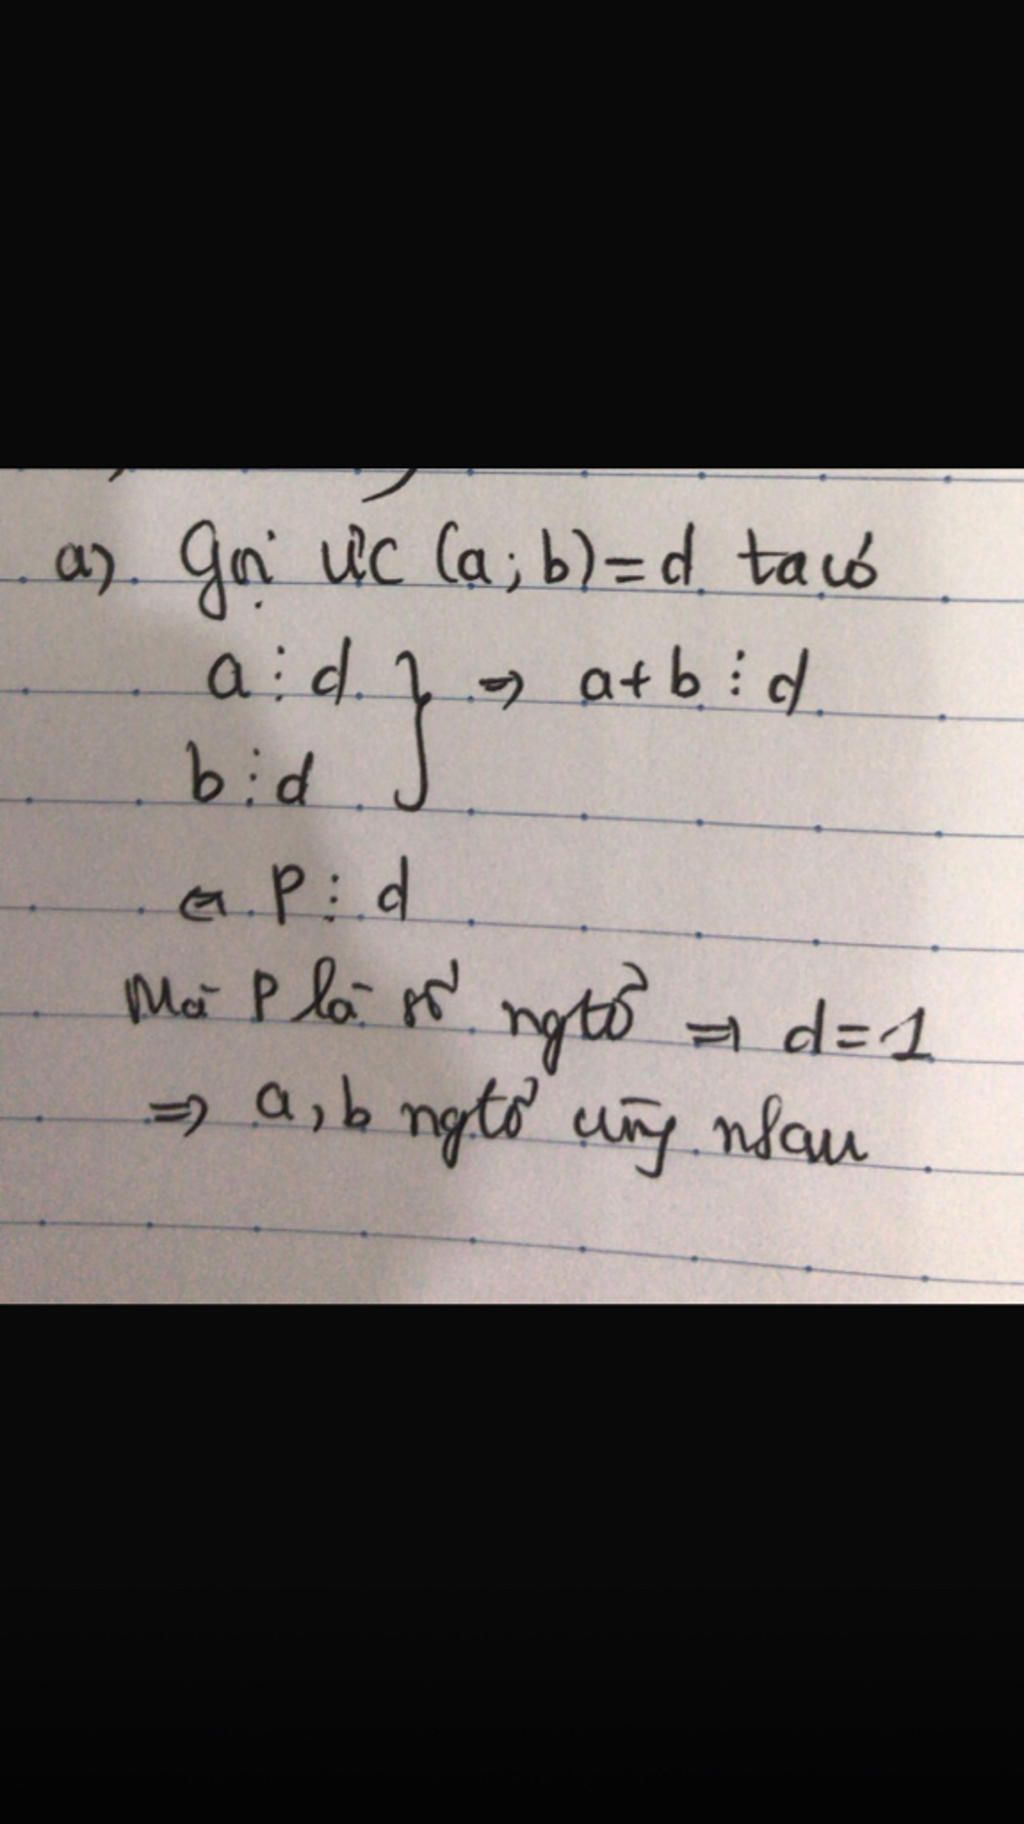 a) Gọi ƯC (a; b) = d ta có
a ⋮ d } ⇒ a + b ⋮ d
b ⋮ d
⇔ P ⋮ d
Mà P là số ngtố ⇒ d = 1
⇒ a, b ngtố cùng nhau